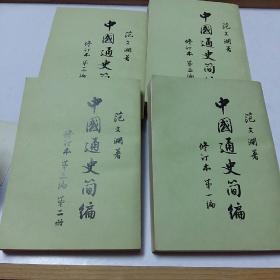 范文瀾著
中國通史簡
修订本 第二编
范文瀾著
中國通史簡
修订本 第
范文瀾著
中國通史简编
修订本 第三编 第二册
范文瀾著
中國通史简编
修订本 第一编